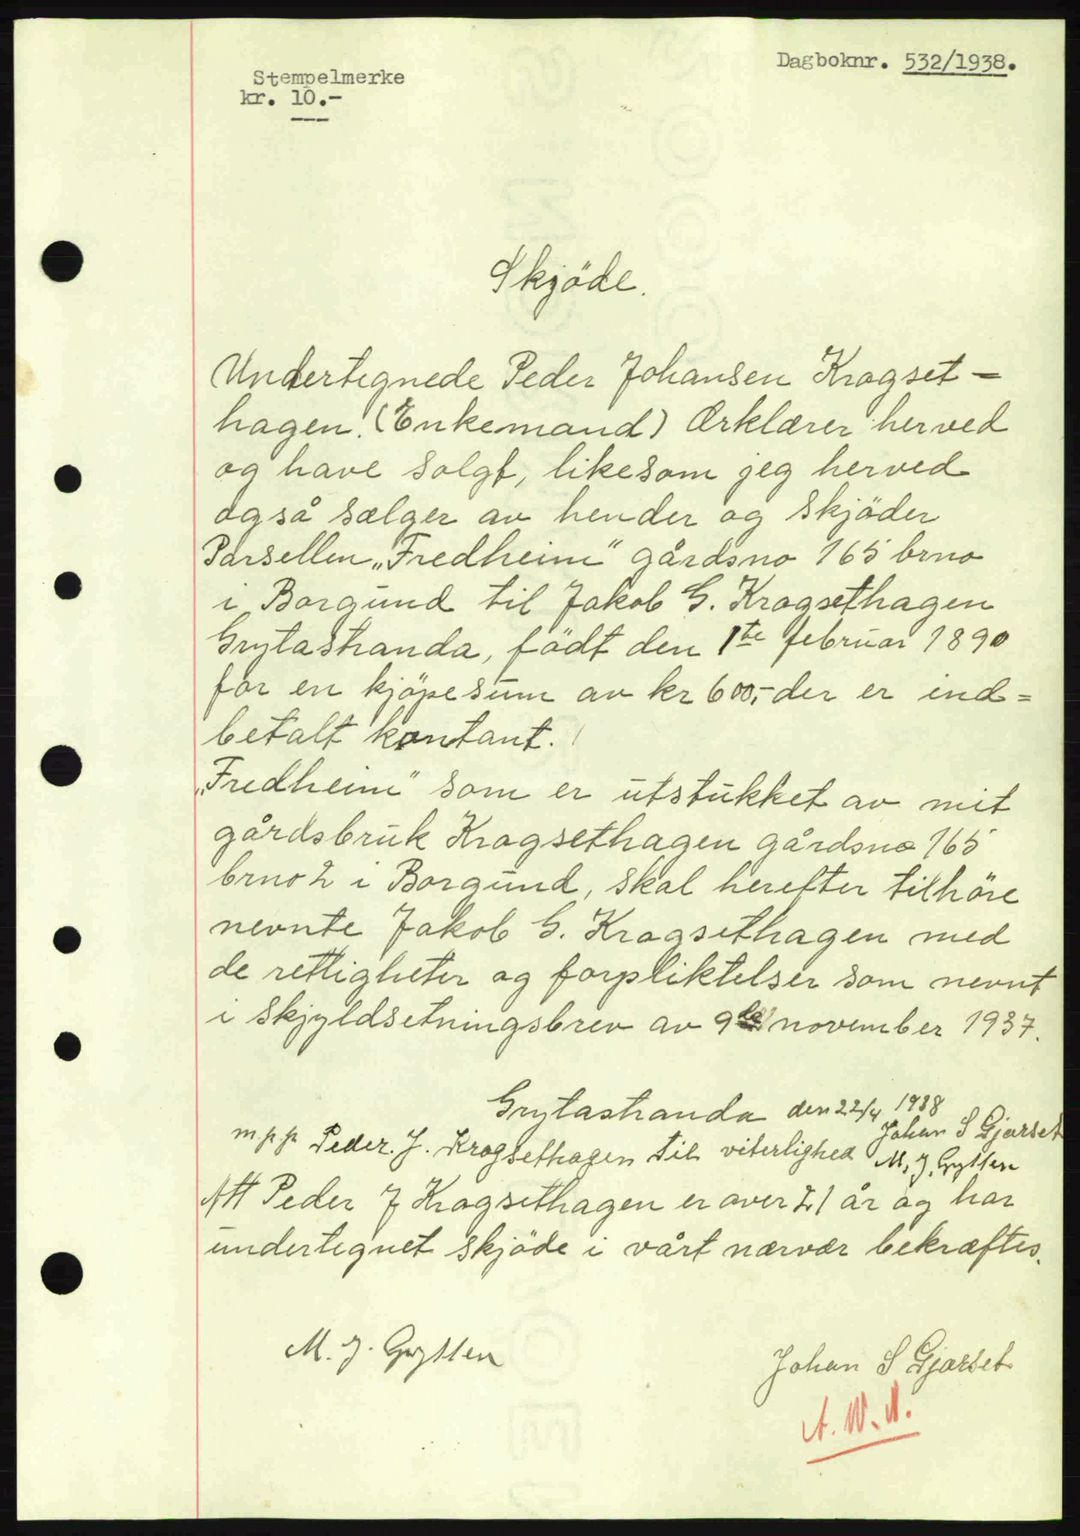 Dagboknr. 532/1938.
Stempelmerke
kr. 10.-
Skjöde.
Undertegnede Peder Johansen Kragset-
hagen. (Enkemand) Ærklærer herved
og have solgt, likesom jeg herved
også sælger av hender og skjöder
Parsellen „Fredheim" gårdsno 165 brno
i Borgund til Jakob G. Kragsethagen
Grytastranda, födt den 1te februar 1890
for en kjöpesum av kr 600,- der er ind=
betalt kontant.
„Fredheim" som er utstukket av mit
gårdsbruk Kragsethagen gårdsno 165
brno 2 i Borgund, skal herefter tilhöre
nevnte Jakob G. Kragsethagen med
de rettigheter og forpliktelser som nevnt
i skjyldsetningsbrev av 9de november 1937.
Grytastranda den 22/4 1938
m p p Peder. J. Kragsethagen til viterlighed Johan S Gjærset
M. J. Grytten
Att Peder J Kragsethagen er over 21 år og har
undertegnet skjöde i vårt nærvær bekræftes.
M. J. Grytten
Johan S Gjærset
A. W. N.